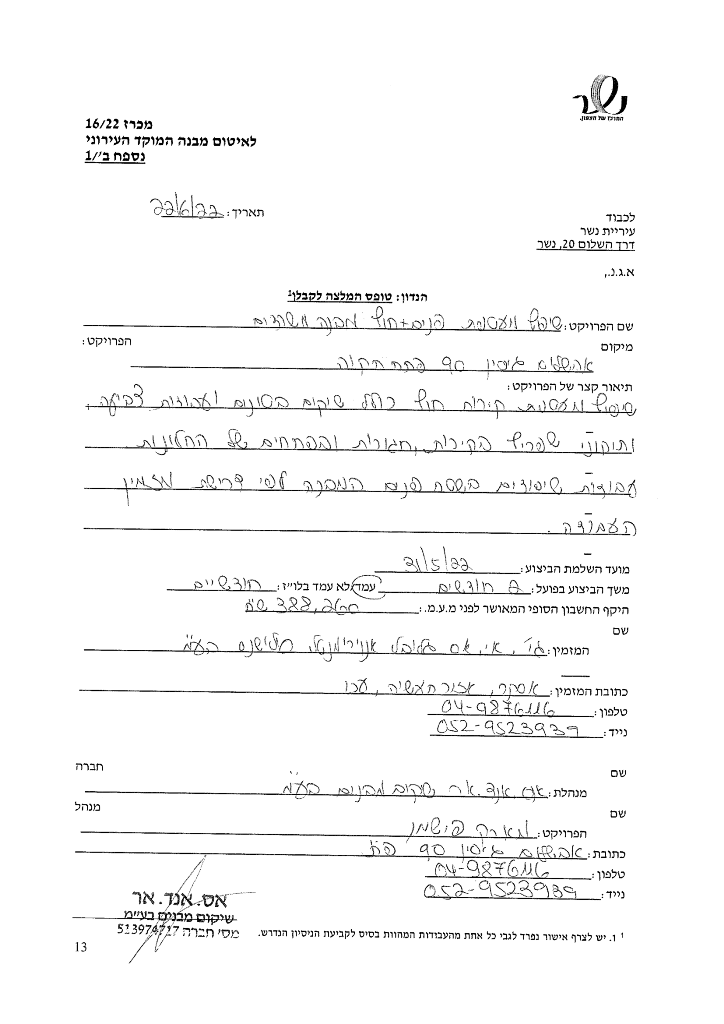 נשר
המרכז של הצפון.
מכרז 16/22
לאיטום מבנה המוקד העירוני
נספח ב'/1
תאריך: 22/6/22
לכבוד
עיריית נשר
דרך השלום 20, נשר
א.ג.נ.,
הנדון: טופס המלצה לקבלן1
שם הפרויקט: שיפוץ ומעטפת פנים+חוץ מבנה משרדים
מיקום הפרויקט:
אבשלום גיסין 90 פתח תקוה
תיאור קצר של הפרויקט:
שיפוץ מעטפת קירות חוץ כולל שיקום בטונים ועבודות צביעה,
ותיקוני שפריץ בקירות, חגורות ובפתחים של החלונות
עבודות שיפוצים בשטח פנים המבנה לפי דרישת מזמין
העבודה.
מועד השלמת הביצוע: 31/5/22
משך הביצוע בפועל: 2 חודשים עמד/לא עמד בלו"ז: חודשיים
היקף החשבון הסופי המאושר לפני מ.ע.מ.: 388,260 ש"ח
שם
המזמין: ג'י, אי, אס גלובל אנוירומנטל סולושנס בע"מ
כתובת המזמין: אזור תעשיה, עכו
טלפון: 04-9876116
נייד: 052-9523939
שם חברה
מנהלת: אס. אנד. אר שיקום מבנים בע"מ
שם מנהל
הפרויקט: מארק פישמן
כתובת: אבשלום גיסין 90 פ"ת
טלפון: 04-9876116
נייד: 052-9523939
אס. אנד. אר
שיקום מבנים בע"מ
מס' חברה 513974717
1 1. יש לצרף אישור נפרד לגבי כל אחת מהעבודות המהוות בסיס לקביעת הניסיון הנדרש.
13